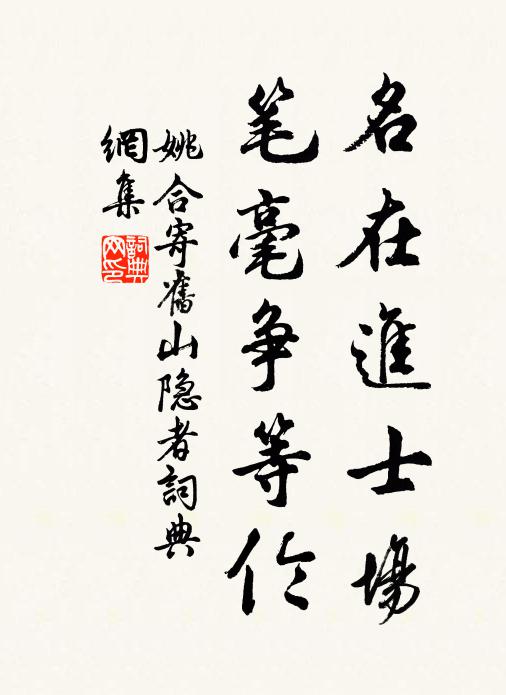 名在進士場
笔毫争等伦
姚合寄舊山隐者詞典
網集
詞典网印